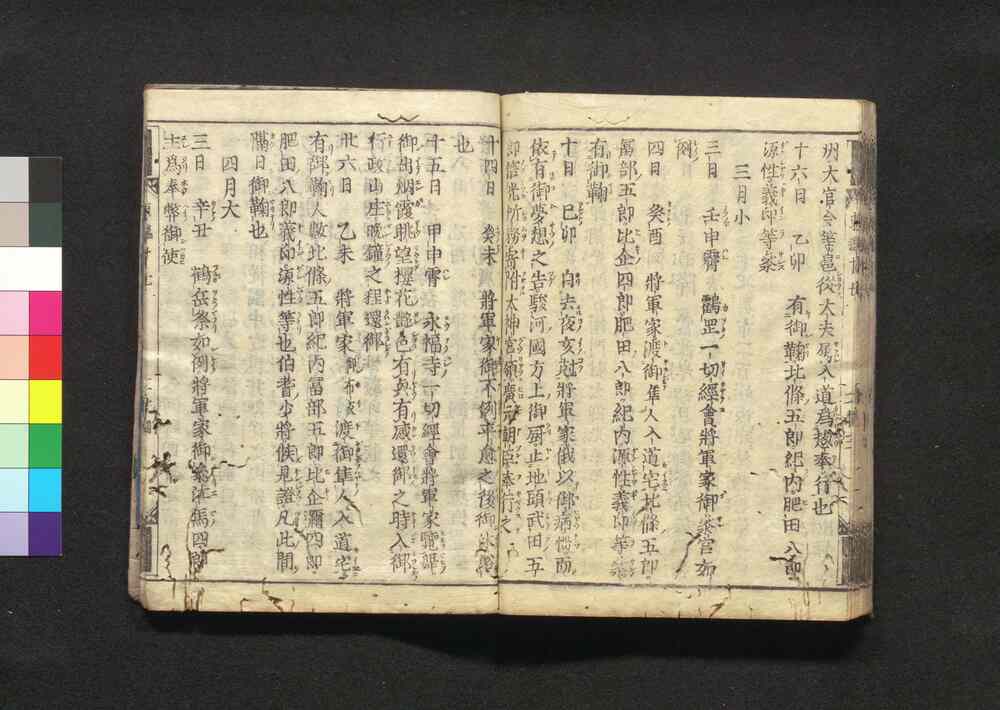 州大官令等邑從大夫属入道為奉行也
十六日 乙卯 有御鞠北條五郎紀内肥田八郎
源性義印等参
三月小
三日 壬申霽 鸖岳一切經會將軍家御参宮如
例
四日 癸酉 將軍家渡御隼人入道宅北條五郎
冨部五郎比企四郎肥田八郎紀内源性義印等参
有御鞠
十日 己卯 自去夜亥尅將軍家俄以御病惱而
依有御夢想之告駿河國方上御厨止地頭武田五
郎信光所務寄附太神宮領廣元朝臣奉行之
十四日 癸未 將軍家御不例平愈之後御沐浴
也
十五日 甲申霽 永福寺一切經會將軍家覽舞
御出烟霞眺望櫻花艶色有興有感還御之時入御
行政山庄晩鐘之程還御
廿六日 乙未 將軍家御布衣渡御隼人入道宅
有御鞠人数北條五郎紀内冨部五郎比企弥四郎
肥田八郎義印源性等也伯耆少將候見證凡此間
隔日御鞠也
四月大
三日 辛丑 鶴岳祭如例將軍家御参江馬四郎
主為奉幣御使